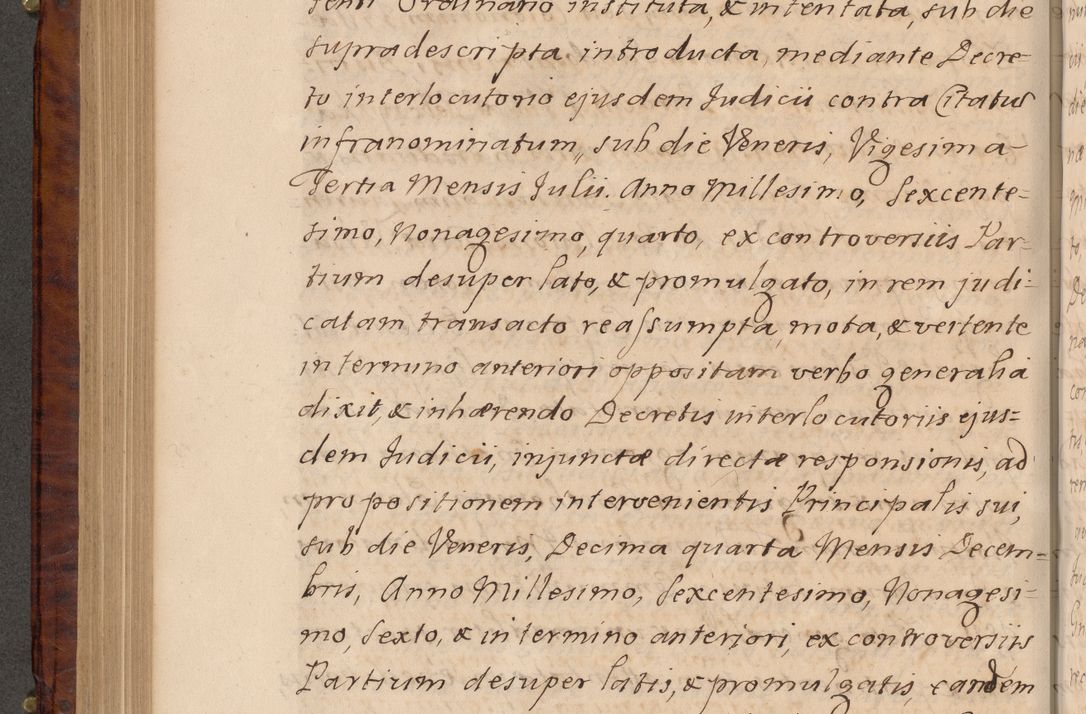 Ordinario instituta, & intentata, sub die
supradescripta introducta, mediante Decre-
to interlocutorio ejusdem Judicii contra Citatum
infranominatum, sub die Veneris, Vigesima
Tertia Mensis Julii. Anno Millesimo, Sexcente-
simo, Nonagesimo, quarto, ex controversiis Par-
tium desuper lato, & promulgato, in rem judi-
catam transacto reaſsumpta, mota, & vertente
in termino anteriori oppositam verbo generalia
dixit, & inhærendo Decretis interlocutoriis ejus=
dem Judicii, injunctæ directæ responsionis, ad
propositionem intervenientis Principalis sui,
sub die Veneris, Decima quarta Mensis Decem=
bris, Anno Millesimo, Sexcentesimo, Nonagesi=
mo, Sexto, & in termino anteriori, ex controversiis
Partium desuper latis, & promulgatis, eandem